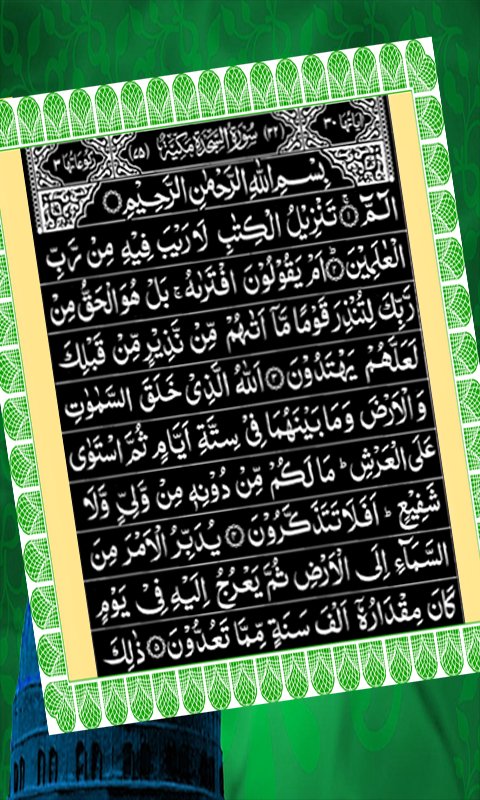 اٰیاتها ٣٠ (٣٢) سُوْرَةُ السَّجْدَةِ مَكِّيَّةٌ (٧٥) رکوعاتها ٣
بِسْمِ اللّٰهِ الرَّحْمٰنِ الرَّحِيْمِ
الٓمّٓ ۝١ تَنْزِيْلُ الْكِتٰبِ لَا رَيْبَ فِيْهِ مِنْ رَّبِّ
الْعٰلَمِيْنَ ۝٢ اَمْ يَقُوْلُوْنَ افْتَرٰىهُ ۚ بَلْ هُوَ الْحَقُّ مِنْ
رَّبِّكَ لِتُنْذِرَ قَوْمًا مَّاۤ اَتٰىهُمْ مِّنْ نَّذِيْرٍ مِّنْ قَبْلِكَ
لَعَلَّهُمْ يَهْتَدُوْنَ ۝٣ اَللّٰهُ الَّذِيْ خَلَقَ السَّمٰوٰتِ
وَالْاَرْضَ وَمَا بَيْنَهُمَا فِيْ سِتَّةِ اَيَّامٍ ثُمَّ اسْتَوٰى
عَلَى الْعَرْشِ ؕ مَا لَكُمْ مِّنْ دُوْنِهٖ مِنْ وَّلِيٍّ وَّلَا
شَفِيْعٍ ؕ اَفَلَا تَتَذَكَّرُوْنَ ۝٤ يُدَبِّرُ الْاَمْرَ مِنَ
السَّمَآءِ اِلَى الْاَرْضِ ثُمَّ يَعْرُجُ اِلَيْهِ فِيْ يَوْمٍ
كَانَ مِقْدَارُهٗۤ اَلْفَ سَنَةٍ مِّمَّا تَعُدُّوْنَ ۝٥ ذٰلِكَ